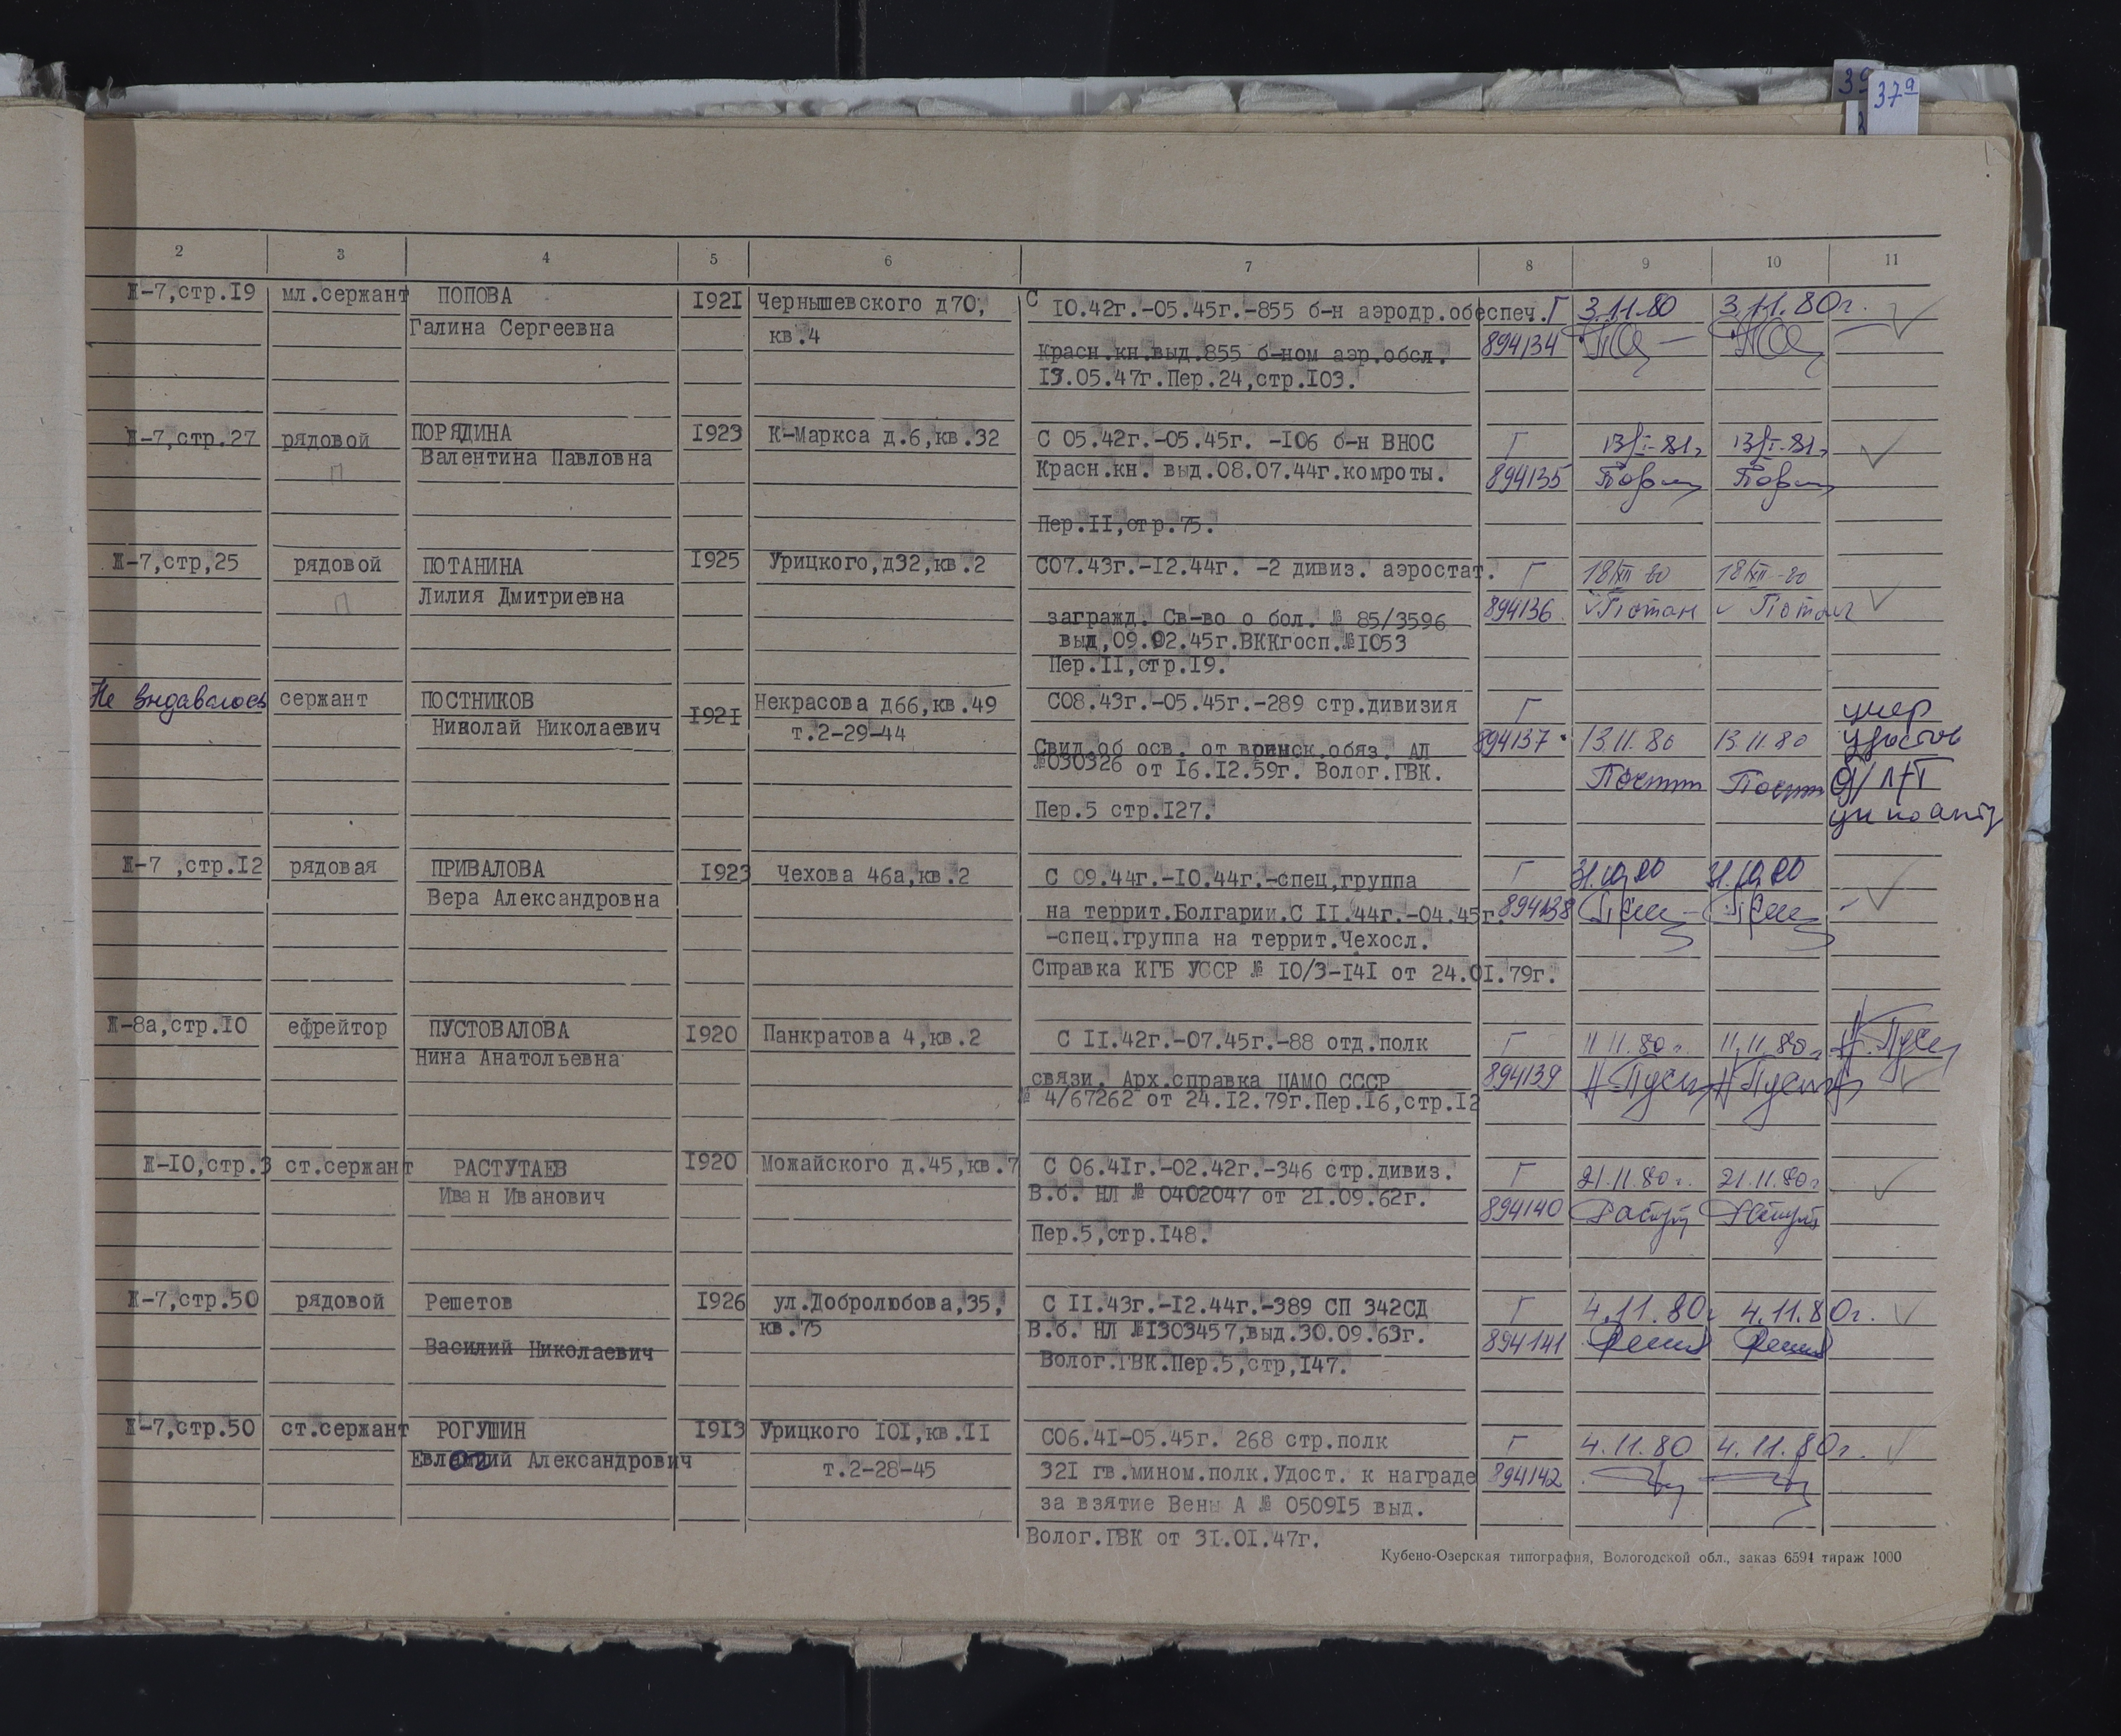 37а
2 3 4 5 6 7 8 9 10 11
Ж-7,стр.I9 мл.сержант ПОПОВА I92I Чернышевского д70, С I0.42г.-05.45г.-855 б-н аэродр.обеспеч. Г 3.11.80 3.11.80г.
Галина Сергеевна кв.4 894134
Красн.кн.выд.855 б-ном аэр.обсл.
I3.05.47г.Пер.24,стр.I03.
Ж-7,стр.27 рядовой ПОРЯДИНА I923 К-Маркса д.6,кв.32 С 05.42г.-05.45г. -I06 б-н ВНОС Г 13/I-81г 13/I-81г
П Валентина Павловна Красн.кн. выд.08.07.44г.комроты. 894135
Пер.II,стр.75.
Ж-7,стр,25 рядовой ПОТАНИНА I925 Урицкого,д32,кв.2 С07.43г.-I2.44г. -2 дивиз. аэростат. Г 18/XII 80 18/XII-80
П Лилия Дмитриевна 894136 Потан Потан
загражд. Св-во о бол. № 85/3596
выд,09.02.45г.ВККгосп.№I053
Пер.II,стр.I9.
Не выдавалось сержант ПОСТНИКОВ I92I Некрасова д66,кв.49 С08.43г.-05.45г.-289 стр.дивизия Г умер
Николай Николаевич т.2-29-44 894137 13.11.80 13.11.80 удостов
Свид.об осв. от воинск.обяз. АД
№030326 от I6.I2.59г. Волог.ГВК.
Пер.5 стр.I27.
Ж-7 ,стр.I2 рядовая ПРИВАЛОВА I923 Чехова 46а,кв.2 С 09.44г.-I0.44г.-спец,группа Г 31.10.80 31.10.80
Вера Александровна на террит.Болгарии.С II.44г.-04.45г. 894138
-спец.группа на террит.Чехосл.
Справка КГБ УССР № I0/3-I4I от 24.0I.79г.
Ж-8а,стр.I0 ефрейтор ПУСТОВАЛОВА I920 Панкратова 4,кв.2 С II.42г.-07.45г.-88 отд.полк Г 11.11.80г. 11.11.80г
Нина Анатольевна связи. Арх.справка ЦАМО СССР 894139
№ 4/67262 от 24.I2.79г.Пер.I6,стр.I2
Ж-I0,стр.3 ст.сержант РАСТУТАЕВ I920 Можайского д.45,кв.7 С 06.4Iг.-02.42г.-346 стр.дивиз. Г 21.11.80г. 21.11.80г
Иван Иванович В.б. НЛ № 0402047 от 2I.09.62г. 894140
Пер.5,стр.I48.
Ж-7,стр.50 рядовой Решетов I926 ул.Добролюбова,35, С II.43г.-I2.44г.-389 СП 342СД Г 4.11.80г 4.11.80г.
кв.75 В.б. НЛ №I303457,выд.30.09.63г. 894141
Василий Николаевич Волог.ГВК.Пер.5,стр,I47.
Ж-7,стр.50 ст.сержант РОГУШИН I9I3 Урицкого I0I,кв.II С06.4I-05.45г. 268 стр.полк Г 4.11.80 4.11.80г.
Александрович т.2-28-45 32I гв.мином.полк.Удост. к награде 894142
за взятие Вены А № 0509I5 выд.
Волог.ГВК от 3I.0I.47г.
Кубено-Озерская типография, Вологодской обл., заказ 6594 тираж 1000